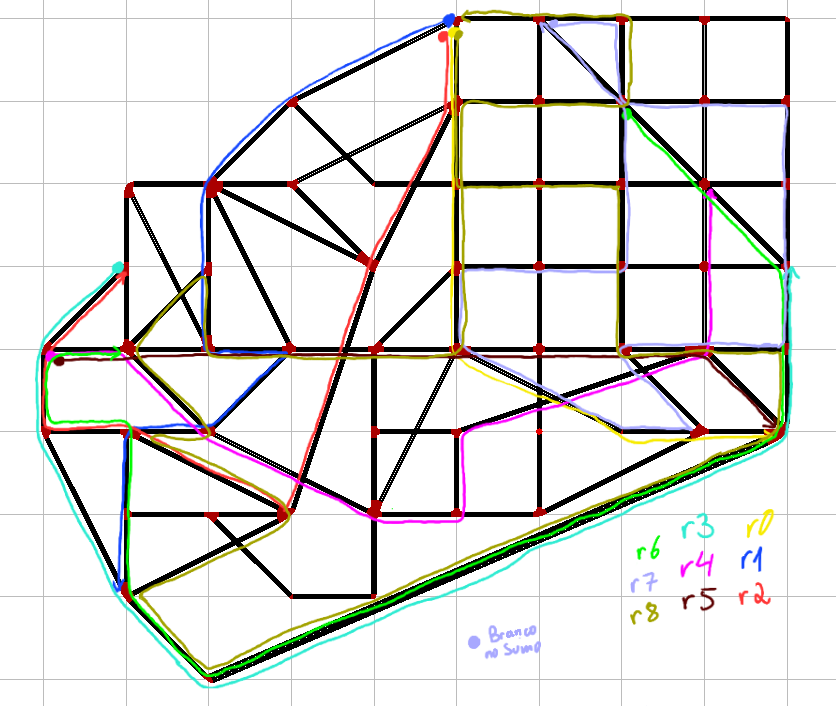 r6 r3 r0
r7 r4 r1
r8 r5 r2
Branco
no Sumo